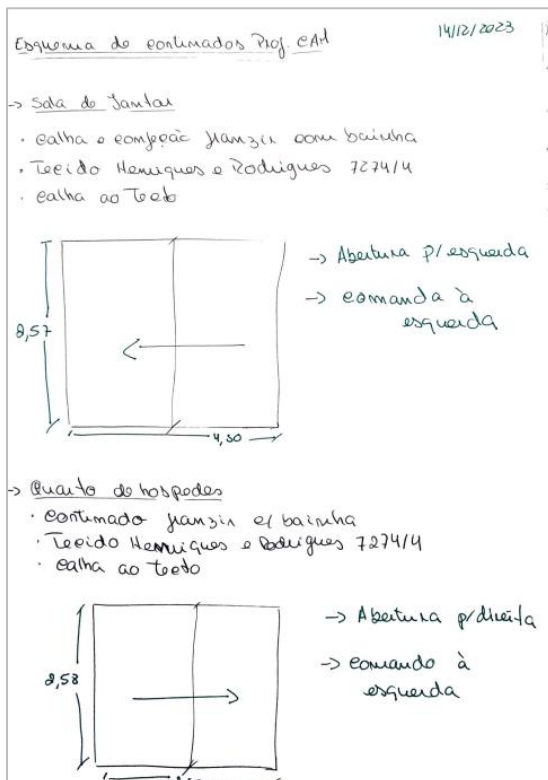 Esquema de cortinados Prof. CArl
14/12/2023
-> Sala de Jantar
· calha e confeção franzir com bainha
· Tecido Henriques e Rodrigues 7274/4
· calha ao Teto
-> Abertura p/ esquerda
-> comando à
esquerda
2,57
4,30
-> Quarto de hospedes
· cortinado franzir c/ bainha
· Tecido Henriques e Rodrigues 7274/4
· calha ao teto
-> Abertura p/ direita
-> comando à
esquerda
2,58